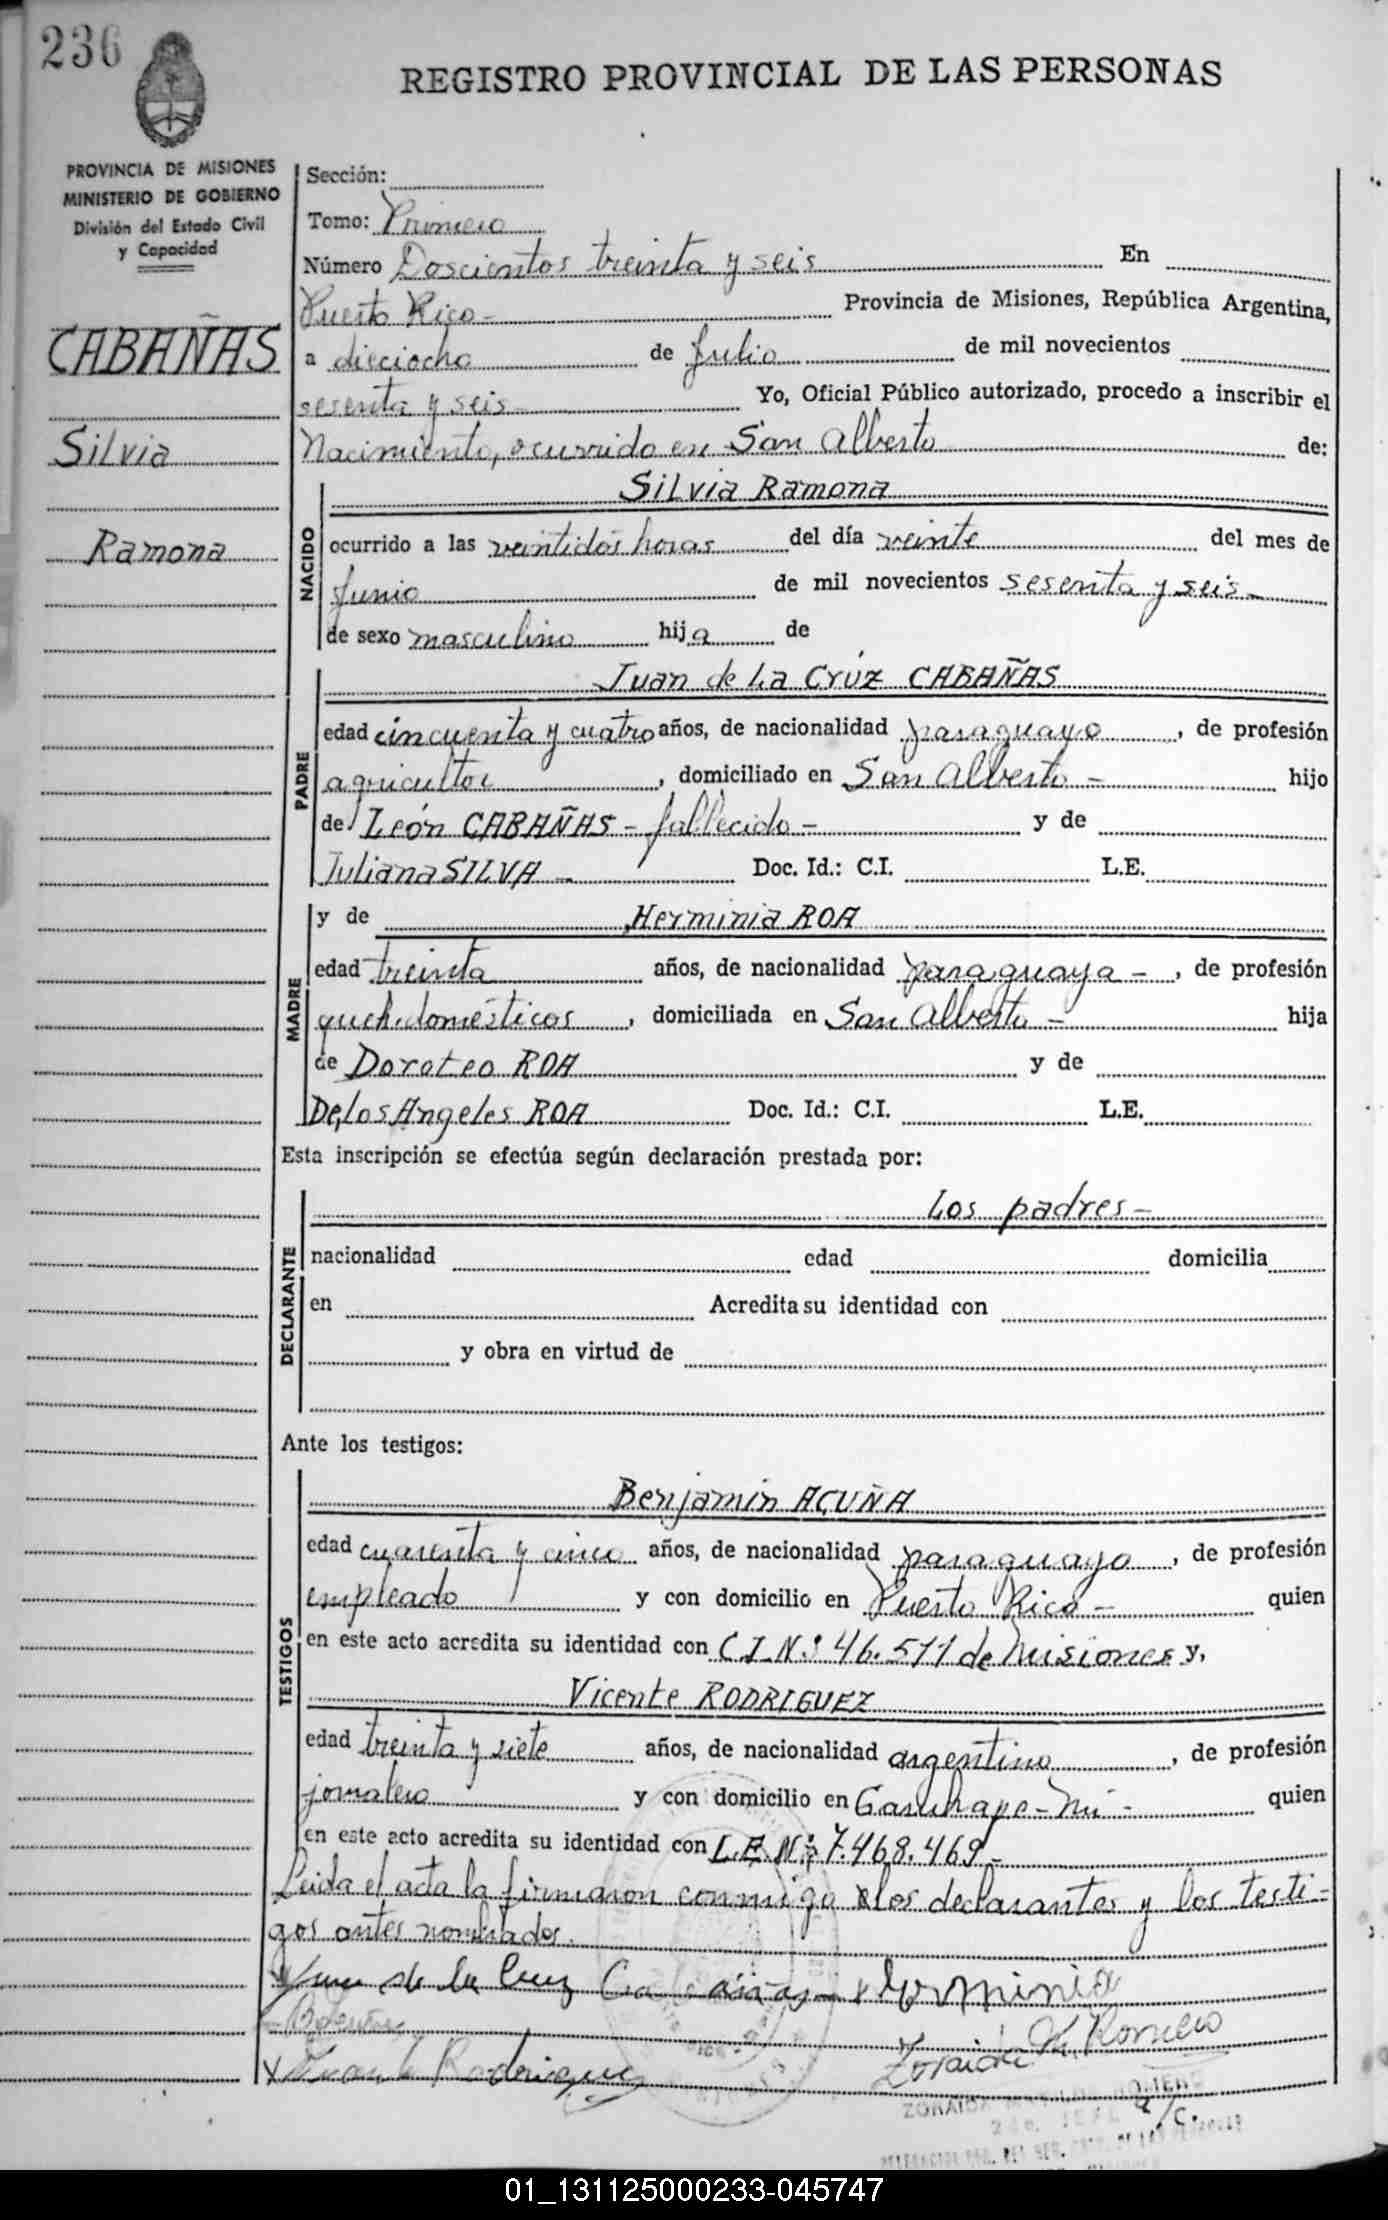 236
REGISTRO PROVINCIAL DE LAS PERSONAS
PROVINCIA DE MISIONES
MINISTERIO DE GOBIERNO
División del Estado Civil
y Capacidad
CABAÑAS
Silvia
Ramona
Sección:
Tomo: Primero
Número Doscientos treinta y seis En
Puerto Rico- Provincia de Misiones, República Argentina,
a dieciocho de Julio de mil novecientos
sesenta y seis Yo, Oficial Público autorizado, procedo a inscribir el
Nacimiento, ocurrido en San Alberto de:
NACIDO
Silvia Ramona
ocurrido a las veintidós horas del día veinte del mes de
Junio de mil novecientos sesenta y seis-
de sexo masculino hija de
PADRE
Juan de La Cruz CABAÑAS
edad cincuenta y cuatro años, de nacionalidad paraguayo, de profesión
agricultor, domiciliado en San Alberto- hijo
de León CABAÑAS - fallecido - y de
Juliana SILVA - Doc. Id.: C.I. L.E.
MADRE
y de Herminia ROA
edad treinta años, de nacionalidad paraguaya -, de profesión
queh. domésticos, domiciliada en San Alberto - hija
de Doroteo ROA y de
De los Angeles ROA Doc. Id.: C.I. L.E.
Esta inscripción se efectúa según declaración prestada por:
DECLARANTE
Los padres-
nacionalidad edad domicilia
en Acredita su identidad con
y obra en virtud de
Ante los testigos:
TESTIGOS
Benjamin ACUÑA
edad cuarenta y cinco años, de nacionalidad paraguayo, de profesión
empleado y con domicilio en Puerto Rico - quien
en este acto acredita su identidad con C.I.N.: 46.511 de Misiones y,
Vicente RODRIGUEZ
edad treinta y siete años, de nacionalidad argentino, de profesión
jornalero y con domicilio en Garuhape - Mi - quien
en este acto acredita su identidad con L.E.N.: 7.468.469-
Leida el acta la firmaron conmigo los declarantes y los testi-
gos antes nombrados.
Juan de la Cruz Cabañas - x Herminia
BAcuña
Zoraida M. Romero
x Vicente Rodriguez
a/c.
01_131125000233-045747